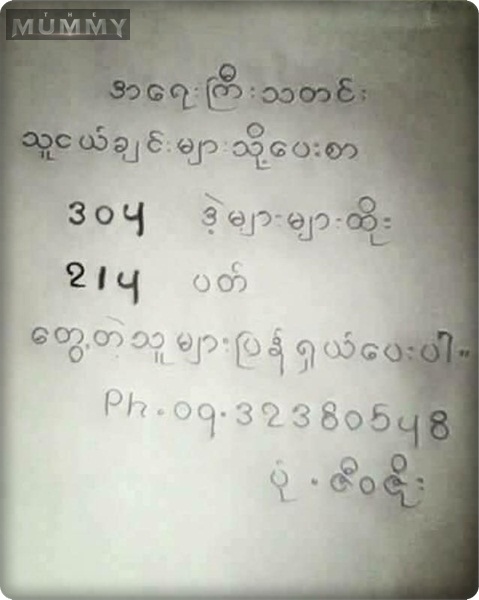 THE
MUMMY
အရေးကြီးသတင်း
သူငယ်ချင်းများသို့ပေးစာ
304 ဒဲ့များများထိုး
214 ပတ်
တွေ့တဲ့သူများပြန်ရှယ်ပေးပါ။
Ph.09.32380548
ပုံ.ဇီဝဇိုး